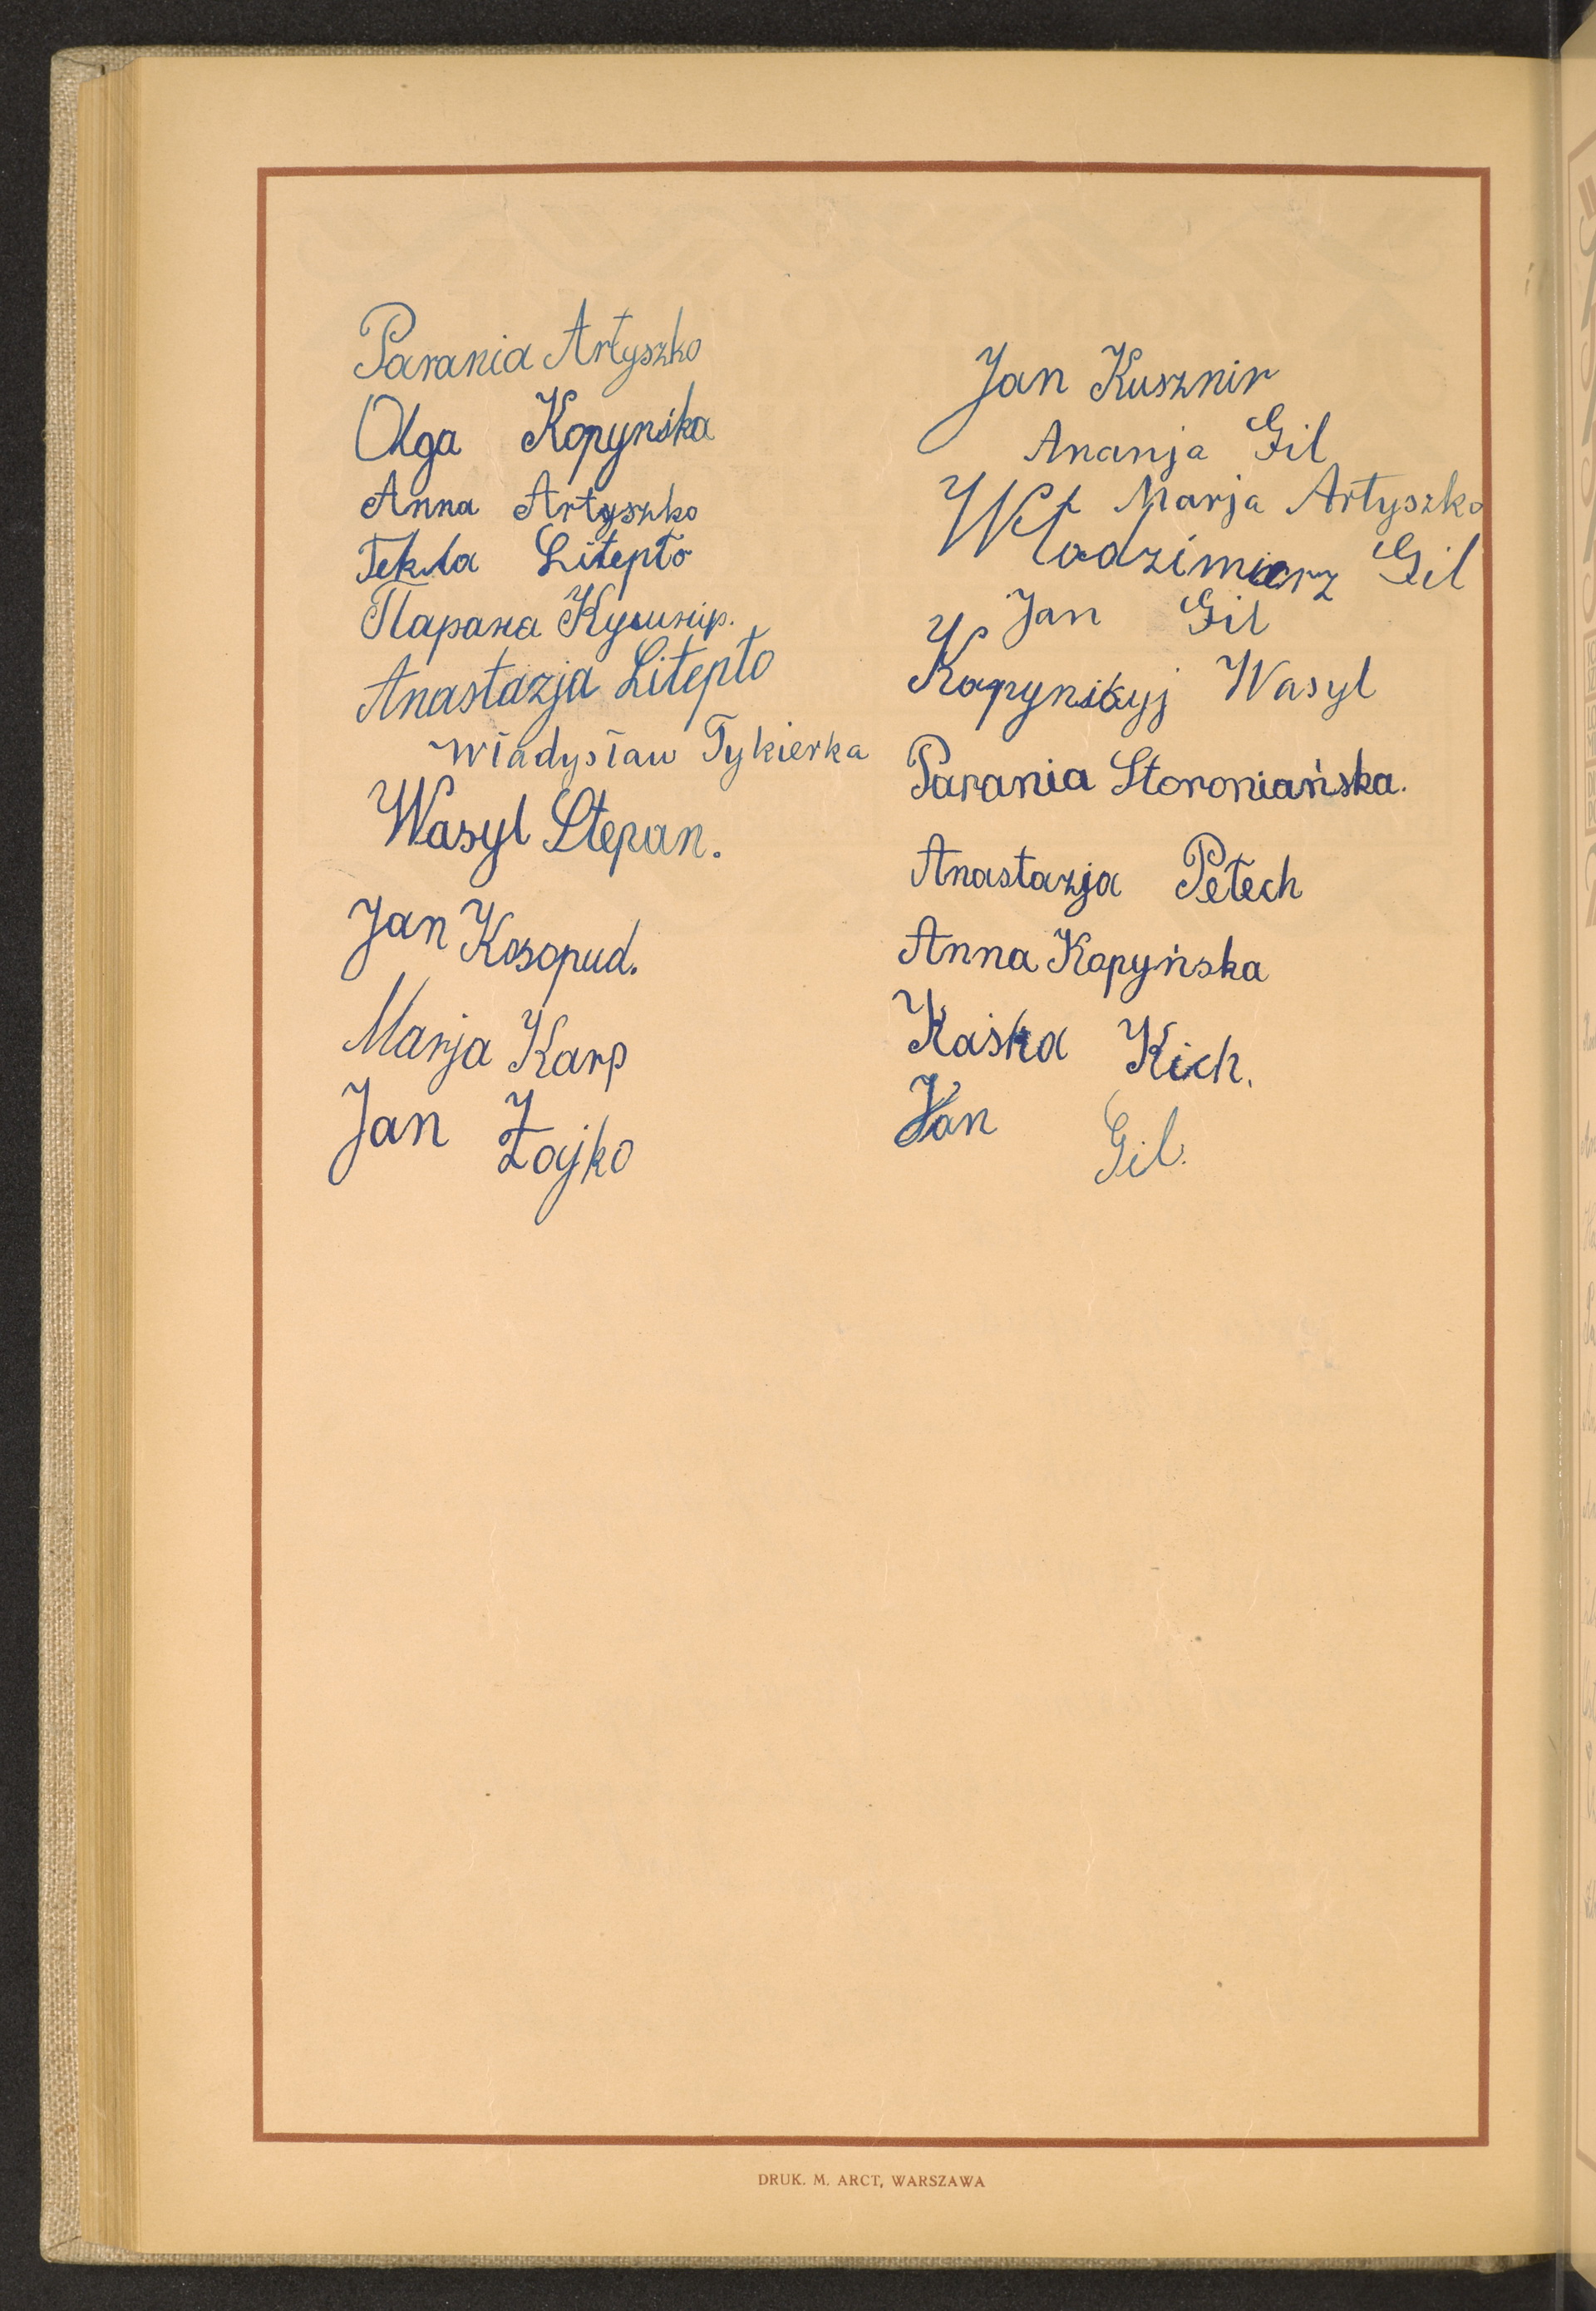 Parania Artyszko
Olga Kopyńska
Anna Artyszko
Tekla Litepło
Парана Кушнір.
Anastazja Litepło
Władysław Tykierka
Wasyl Stepan.
Jan Kosopud.
Marja Karp
Jan Zojko
Jan Kusznir
Ananja Gil
Wł Marja Artyszko
Włodzimierz Gil
Jan Gil
Kopynśkyj Wasyl
Parania Storoniańska.
Anastazja Petech
Anna Kopyńska
Kaśka Kich.
Jan Gil.
DRUK. M. ARCT, WARSZAWA